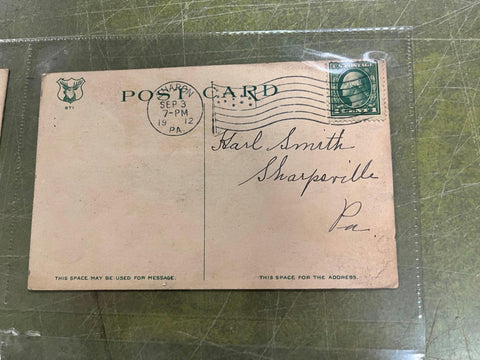 POST CARD
871
SHARON
SEP 3
7-PM
19 12
PA.
U.S. POSTAGE
Karl Smith
Sharpsville
Pa.
THIS SPACE MAY BE USED FOR MESSAGE.
THIS SPACE FOR THE ADDRESS.